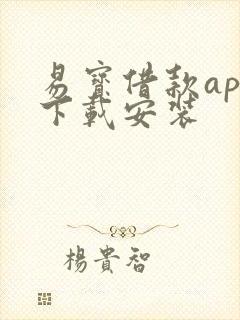 易寳借款ap
下載安装
楊貴智